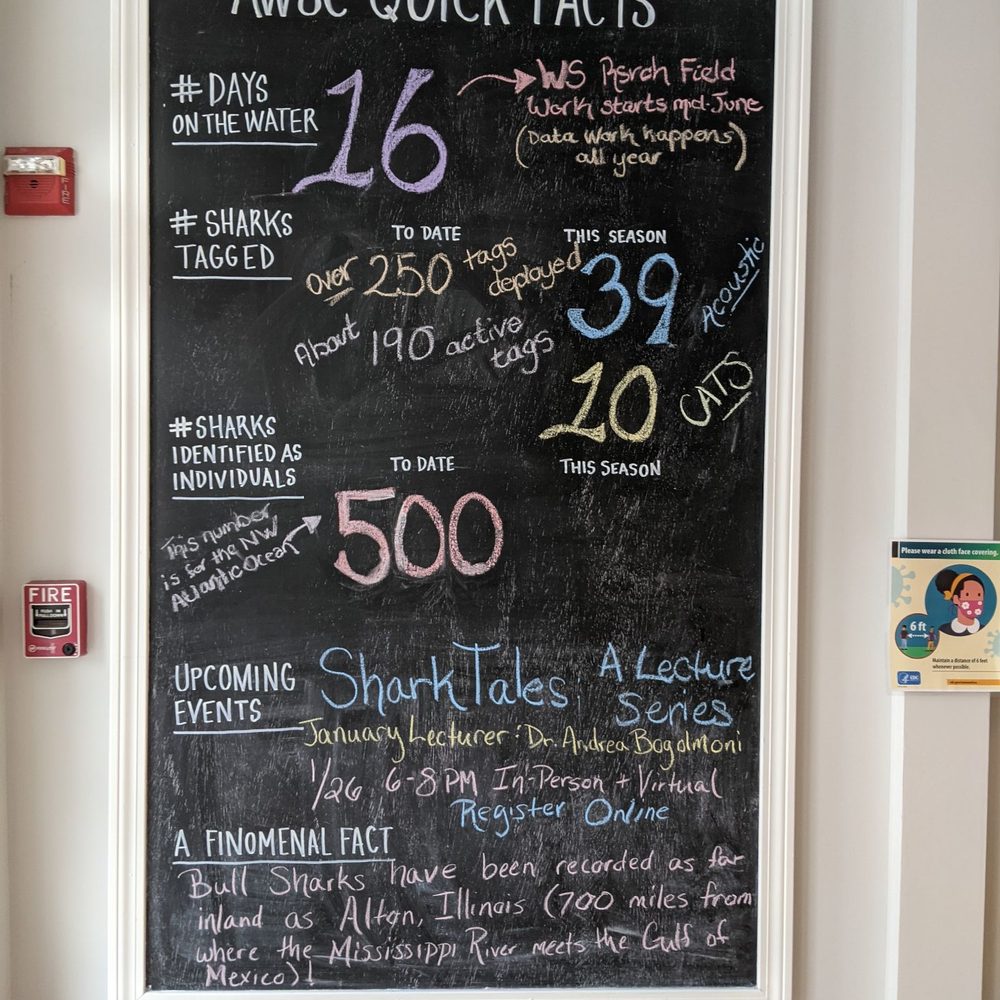 AWSC QUICK FACTS
# DAYS
ON THE WATER
16
WS Rsrch Field
Work starts mid-June
(Data work happens
all year)
# SHARKS
TAGGED
TO DATE
Over 250 tags
deployed
About 190 active
tags
THIS SEASON
39 Acoustic
10 CATS
# SHARKS
IDENTIFIED AS
INDIVIDUALS
TO DATE
THIS SEASON
500
This number
is for the NW
Atlantic Ocean
UPCOMING
EVENTS
Shark Tales: A Lecture
Series
January Lecturer: Dr. Andrea Bogolmoni
1/26 6-8 PM In-Person + Virtual
Register Online
A FINOMENAL FACT
Bull Sharks have been recorded as far
inland as Alton, Illinois (700 miles from
where the Mississippi River meets the Gulf of
Mexico)!
FIRE
FIRE
PULL DOWN
Please wear a cloth face covering.
6 ft
Maintain a distance of 6 feet
whenever possible.
CDC